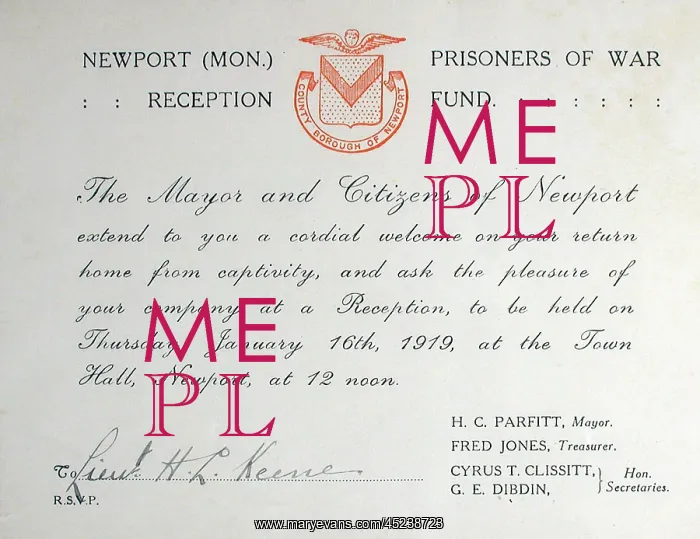 NEWPORT (MON.) PRISONERS OF WAR
: : RECEPTION FUND. : : : : :
COUNTY BOROUGH OF NEWPORT
The Mayor and Citizens of Newport
extend to you a cordial welcome on your return
home from captivity, and ask the pleasure of
your company at a Reception, to be held on
Thursday, January 16th, 1919, at the Town
Hall, Newport, at 12 noon.
H. C. PARFITT, Mayor.
FRED JONES, Treasurer.
CYRUS T. CLISSITT,
G. E. DIBDIN,
Hon.
Secretaries.
To Lieut. H. L. Keene
R.S.V.P.
ME
PL
ME
PL
www.maryevans.com/45238723